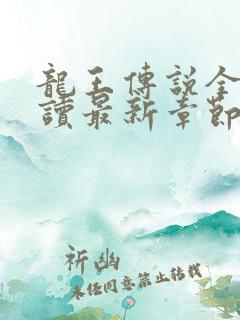 龍王傳說全
讀最新章節
祈幽
未經同意禁止轉載